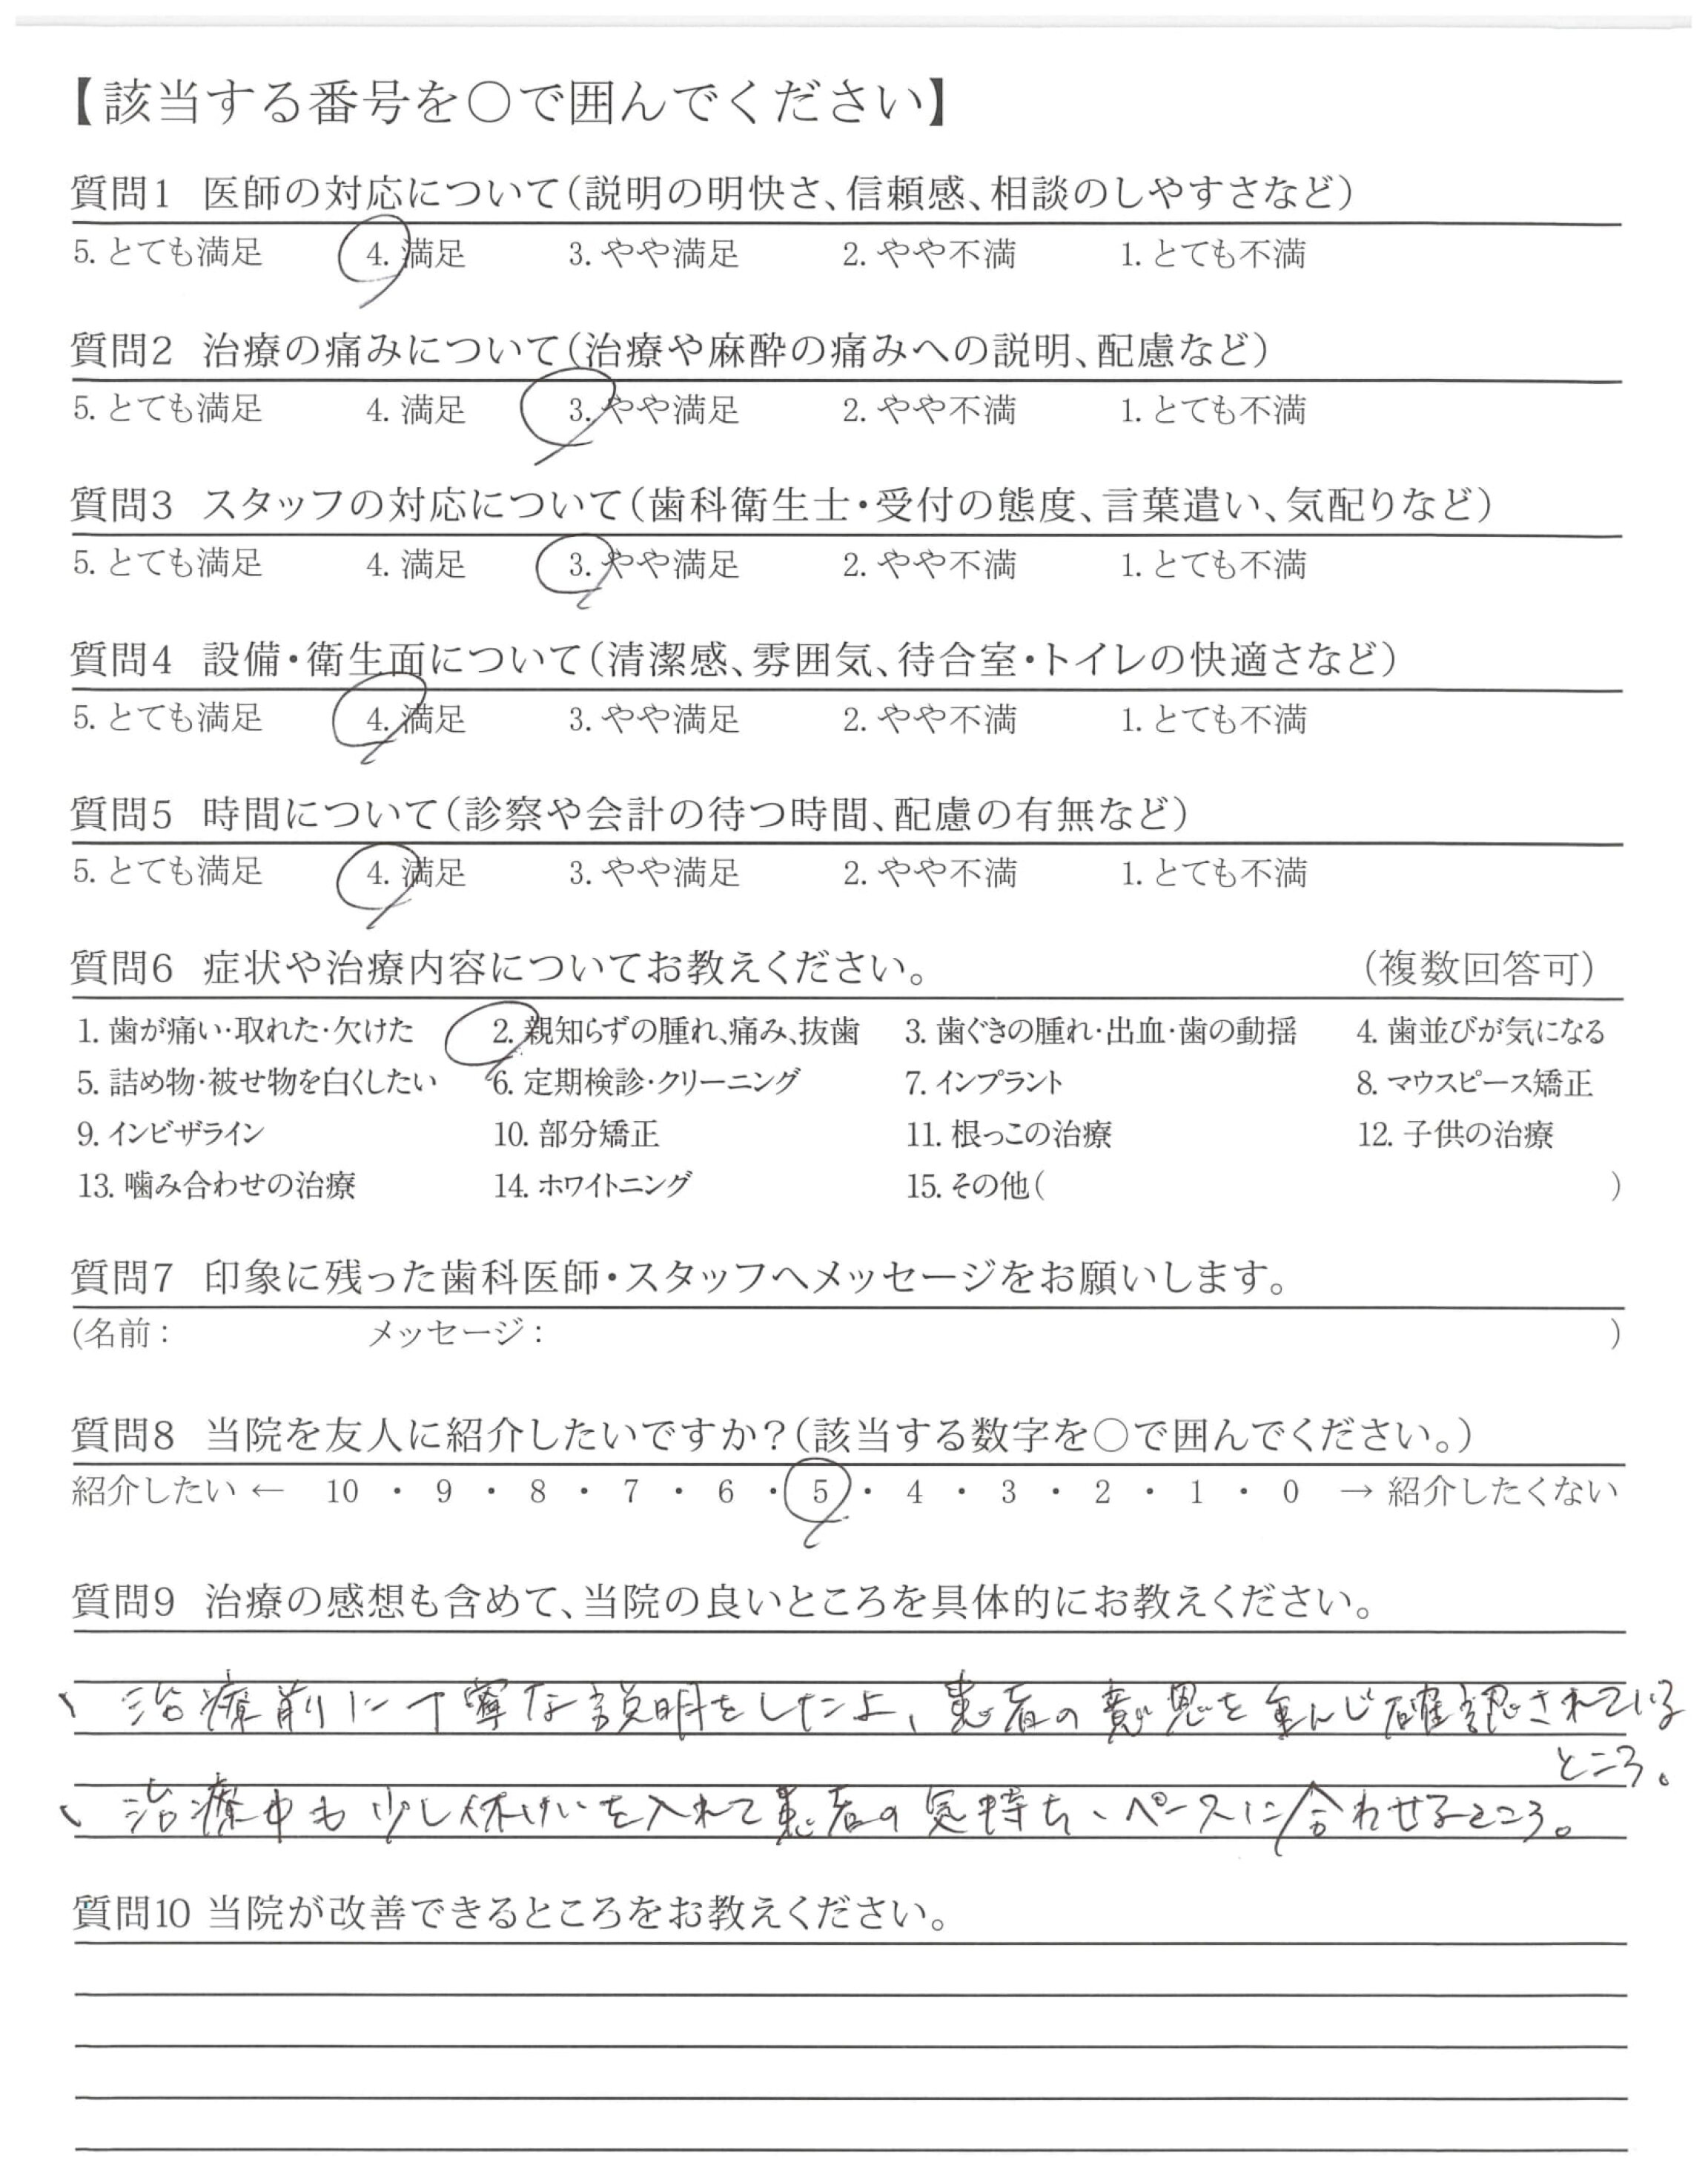 【該当する番号を○で囲んでください】
質問1 医師の対応について(説明の明快さ、信頼感、相談のしやすさなど)
5. とても満足 4. 満足 3. やや満足 2. やや不満 1. とても不満
質問2 治療の痛みについて(治療や麻酔の痛みへの説明、配慮など)
5. とても満足 4. 満足 3. やや満足 2. やや不満 1. とても不満
質問3 スタッフの対応について(歯科衛生士・受付の態度、言葉遣い、気配りなど)
5. とても満足 4. 満足 3. やや満足 2. やや不満 1. とても不満
質問4 設備・衛生面について(清潔感、雰囲気、待合室・トイレの快適さなど)
5. とても満足 4. 満足 3. やや満足 2. やや不満 1. とても不満
質問5 時間について(診察や会計の待つ時間、配慮の有無など)
5. とても満足 4. 満足 3. やや満足 2. やや不満 1. とても不満
質問6 症状や治療内容についてお教えください。 (複数回答可)
1. 歯が痛い・取れた・欠けた 2. 親知らずの腫れ、痛み、抜歯 3. 歯ぐきの腫れ・出血・歯の動揺 4. 歯並びが気になる
5. 詰め物・被せ物を白くしたい 6. 定期検診・クリーニング 7. インプラント 8. マウスピース矯正
9. インビザライン 10. 部分矯正 11. 根っこの治療 12. 子供の治療
13. 噛み合わせの治療 14. ホワイトニング 15. その他( )
質問7 印象に残った歯科医師・スタッフへメッセージをお願いします。
(名前： メッセージ： )
質問8 当院を友人に紹介したいですか？(該当する数字を○で囲んでください。)
紹介したい ← 10 ・ 9 ・ 8 ・ 7 ・ 6 ・ 5 ・ 4 ・ 3 ・ 2 ・ 1 ・ 0 → 紹介したくない
質問9 治療の感想も含めて、当院の良いところを具体的にお教えください。
、治療前に丁寧な説明をした上、患者の意思を重んじ確認されている
ところ。
、治療中も少し休けいを入れて患者の気持ち、ペースに合わせるところ。
質問10 当院が改善できるところをお教えください。